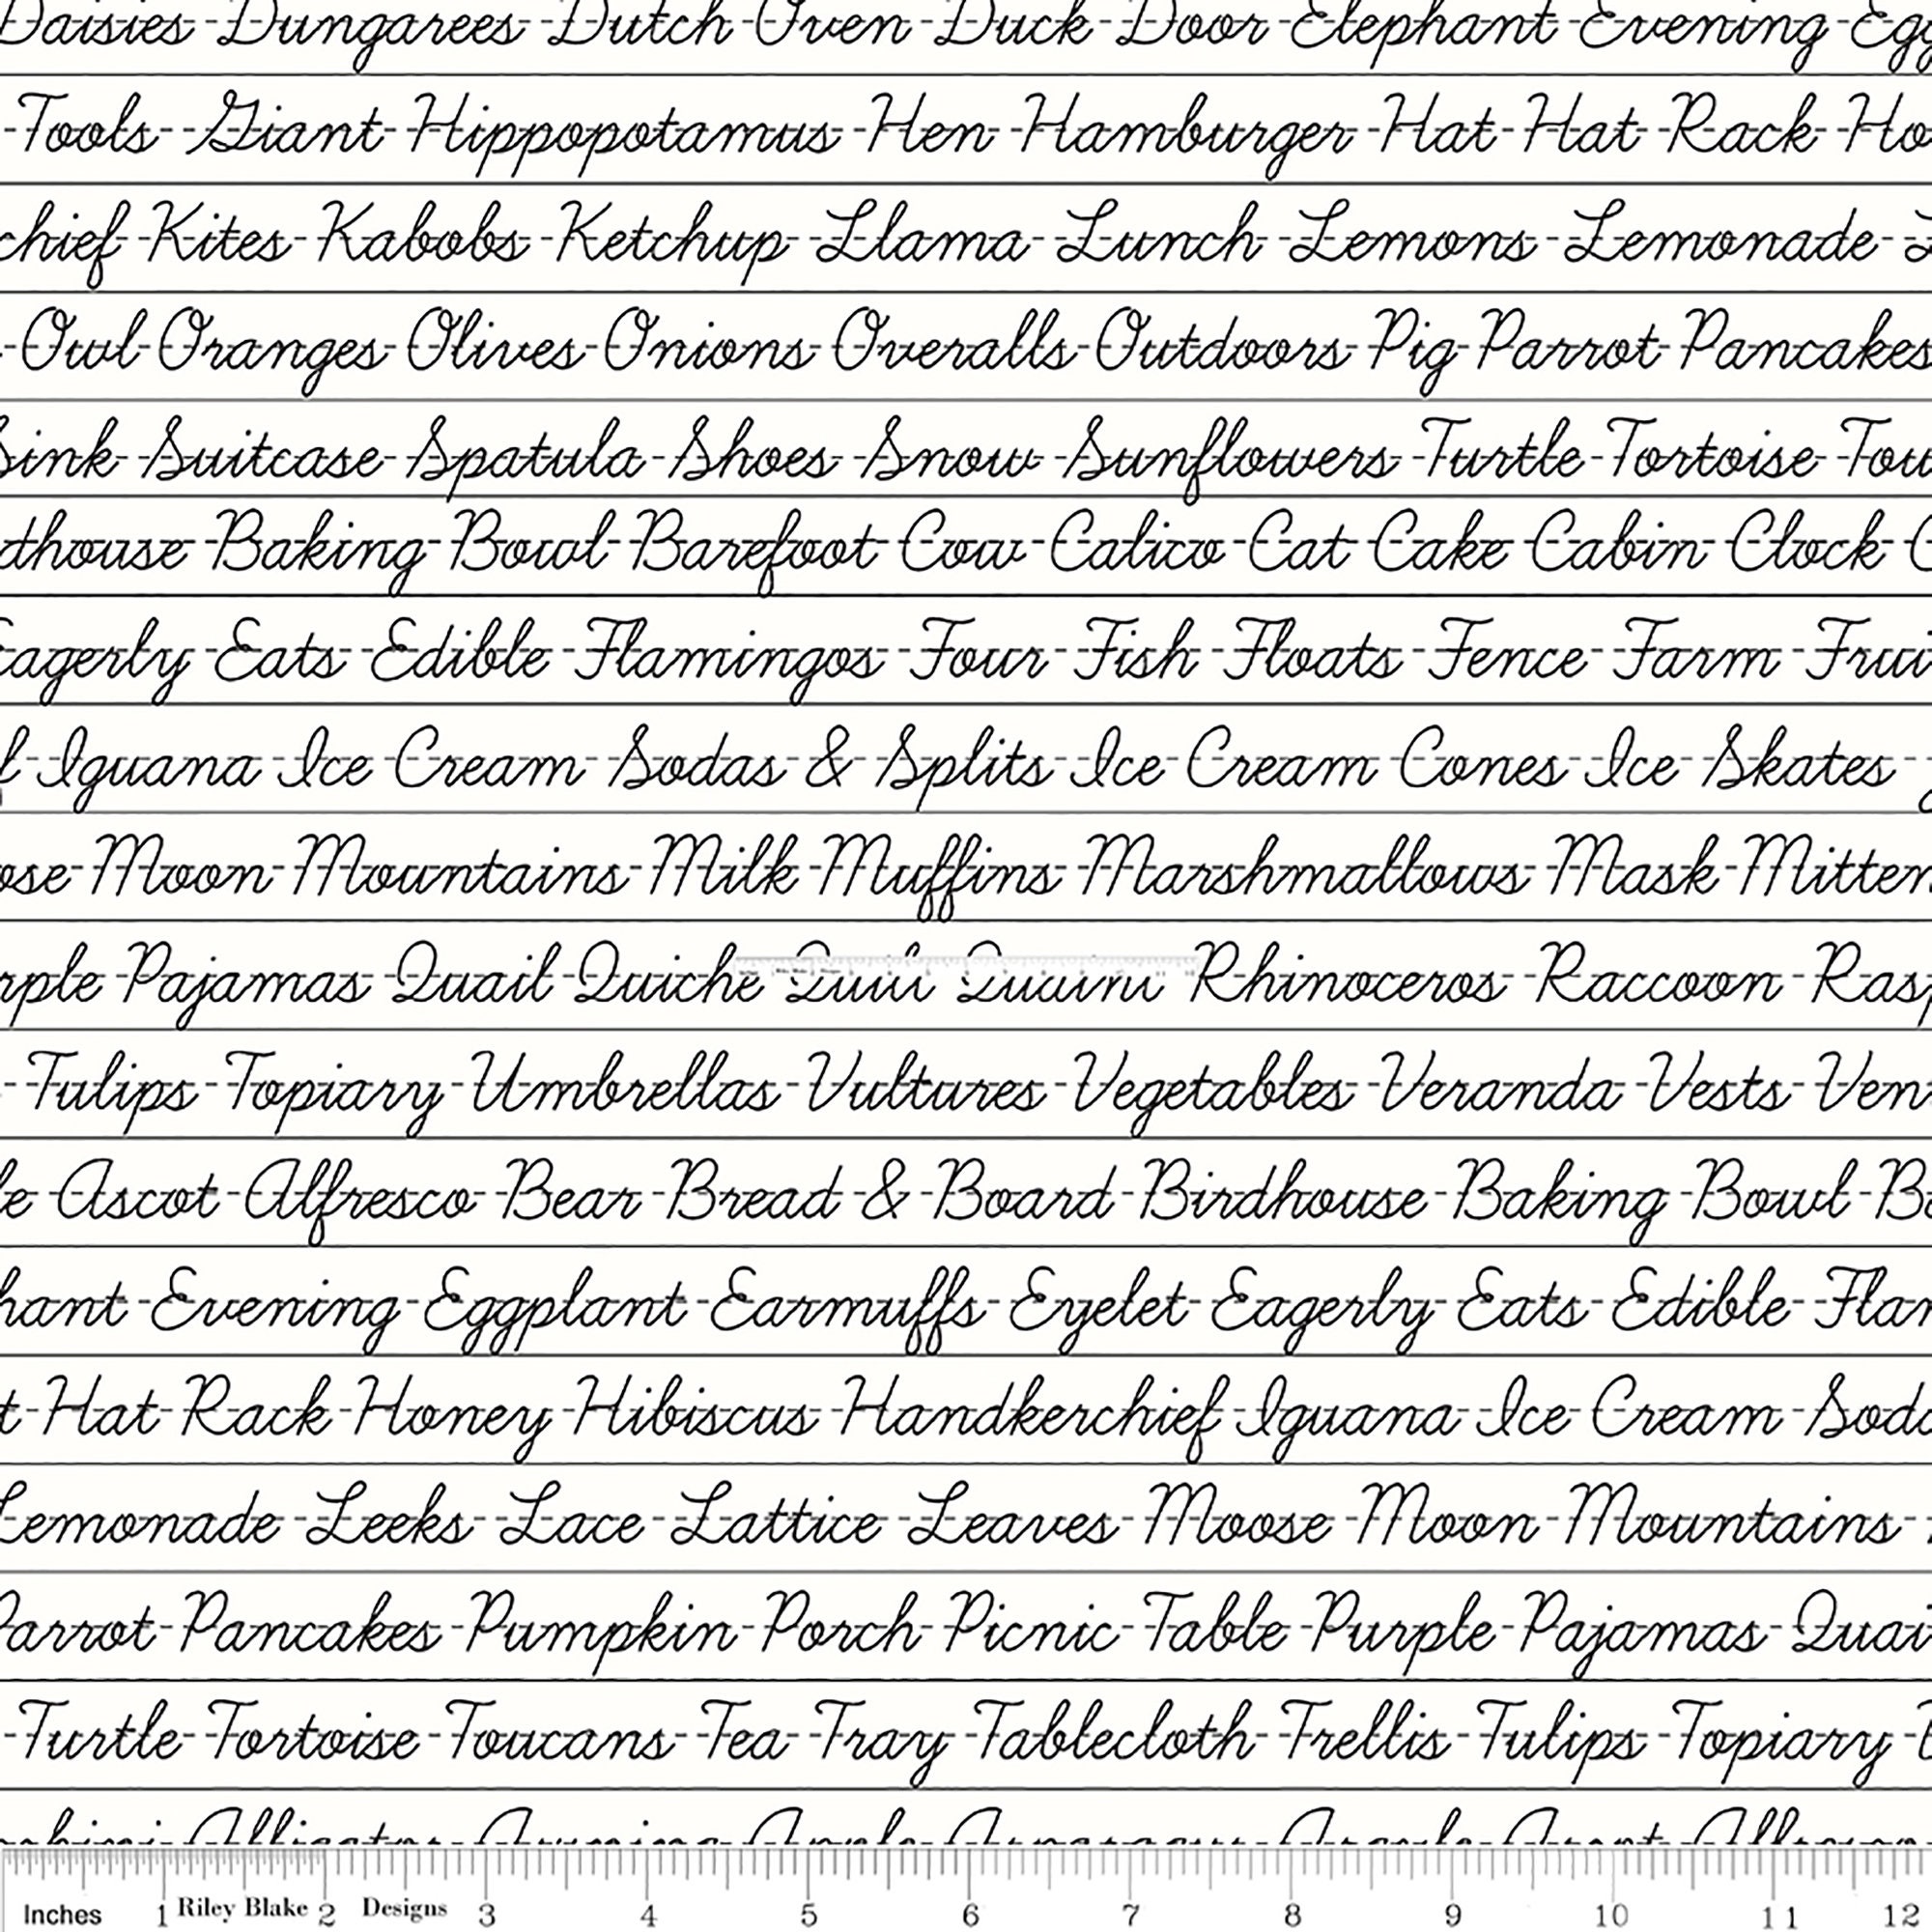 Daisies Dungarees Dutch Oven Duck Door Elephant Evening Egg
Tools Giant Hippopotamus Hen Hamburger Hat Hat Rack Ho
chief Kites Kabobs Ketchup Llama Lunch Lemons Lemonade
Owl Oranges Olives Onions Overalls Outdoors Pig Parrot Pancakes
Sink Suitcase Spatula Shoes Snow Sunflowers Turtle Tortoise Tou
dhouse Baking Bowl Barefoot Cow Calico Cat Cake Cabin Clock C
Eagerly Eats Edible Flamingos Four Fish Floats Fence Farm Frui
f Iguana Ice Cream Sodas & Splits Ice Cream Cones Ice Skates
ose Moon Mountains Milk Muffins Marshmallows Mask Mitten
rple Pajamas Quail Quiche Rhinoceros Raccoon Rasp
Tulips Topiary Umbrellas Vultures Vegetables Veranda Vests Ven
le Ascot Alfresco Bear Bread & Board Birdhouse Baking Bowl Ba
hant Evening Eggplant Earmuffs Eyelet Eagerly Eats Edible Flam
t Hat Rack Honey Hibiscus Handkerchief Iguana Ice Cream Soda
Lemonade Leeks Lace Lattice Leaves Moose Moon Mountains
Parrot Pancakes Pumpkin Porch Picnic Table Purple Pajamas Quai
Turtle Tortoise Toucans Tea Tray Tablecloth Trellis Tulips Topiary
Inches 1 Riley Blake 2 Designs 3 4 5 6 7 8 9 10 11 12